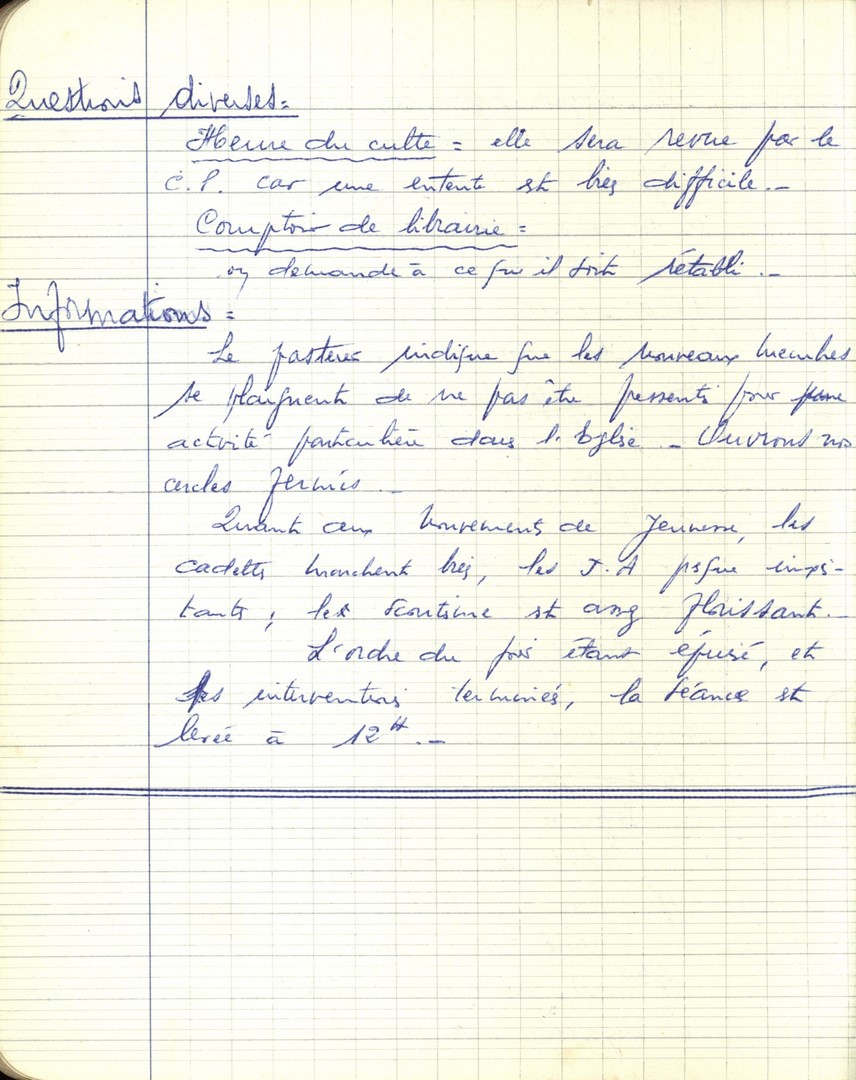 Questions diverses =
Heure du culte = elle sera revue par le
C.P. car une entente est très difficile. -
Comptoir de librairie =
on demande à ce qu'il soit rétabli. -
Informations =
Le pasteur indique que les nouveaux membres
se plaignent de ne pas être pressentis pour une
activité particulière dans l'Eglise - Ouvrons nos
cercles fermés -
Quant aux mouvements de Jeunesse, les
cadets marchent bien, les J.A
; le scoutisme est assez florissant. -
L'ordre du jour étant épuisé, et
les interventions terminées, la séance est
levée à 12H. -